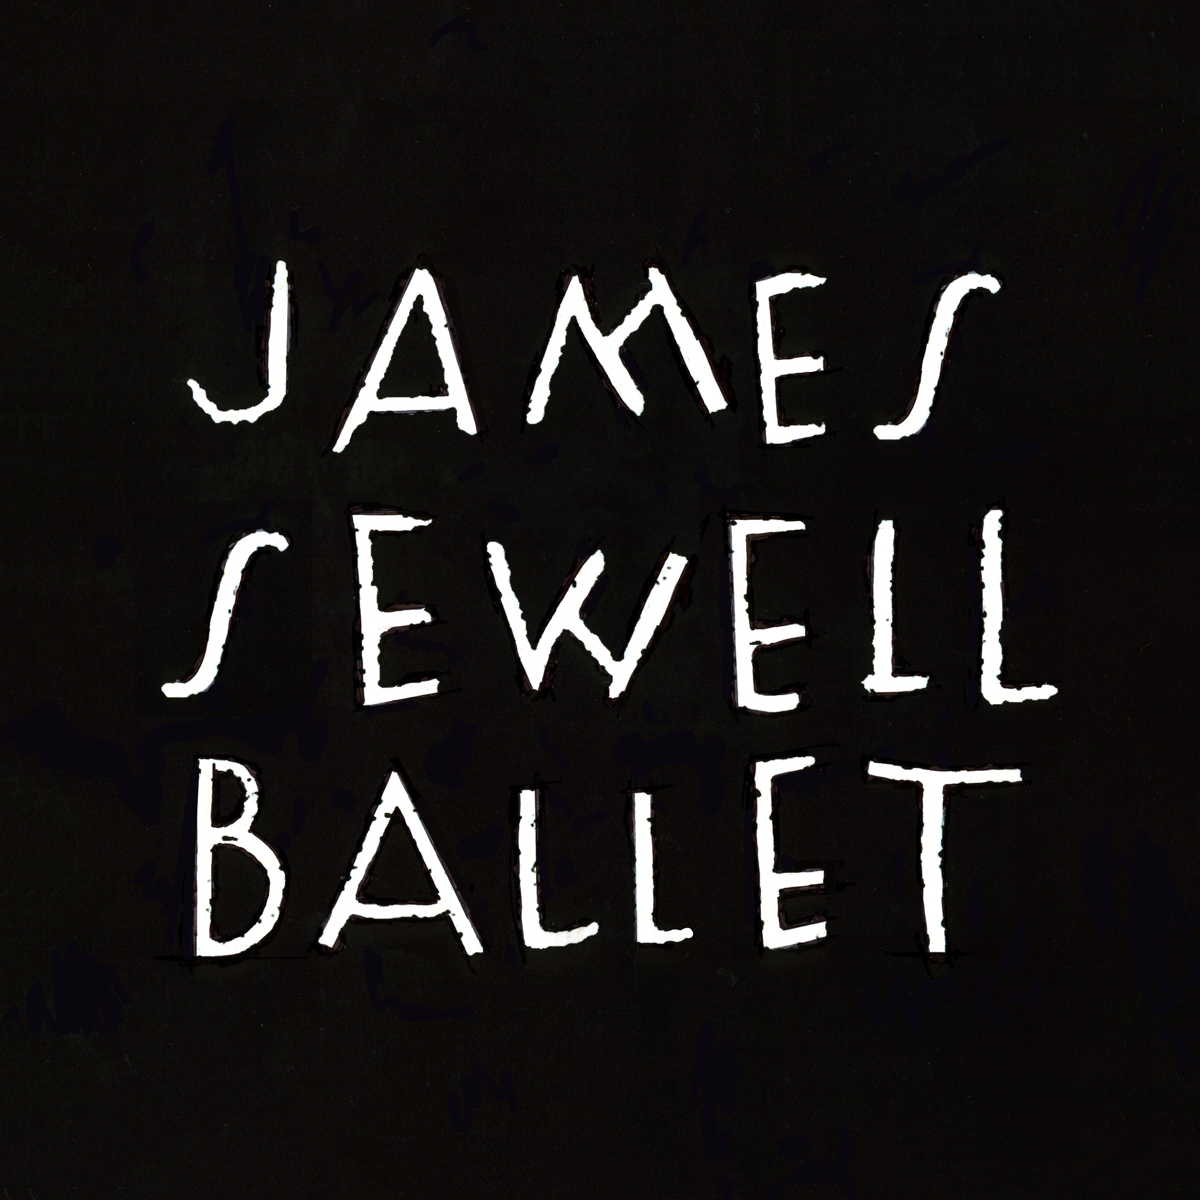 JAMES
SEWELL
BALLET